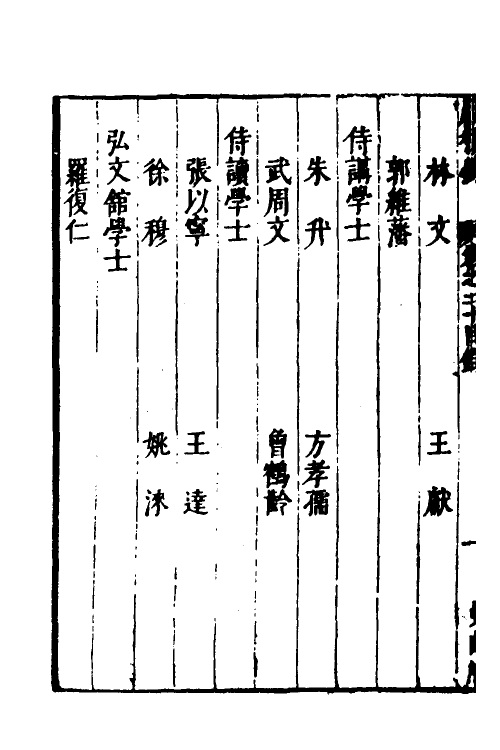 林文　王獻
郭維藩
侍講學士
朱升　方孝孺
武周文　曾鶴齡
侍讀學士
張以寧　王達
徐穆　姚淶
弘文館學士
羅復仁